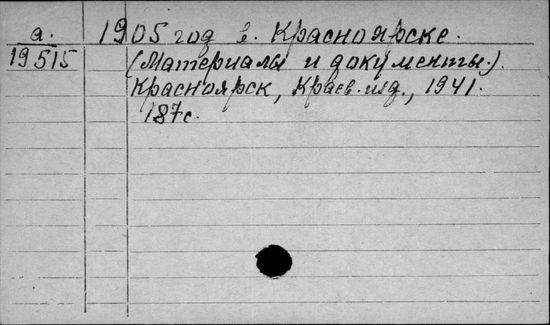 а. 1905 год в. Красноярске.
19515 (Материалы и документы.).
Красноярск, Краев. изд., 1941.
187с.